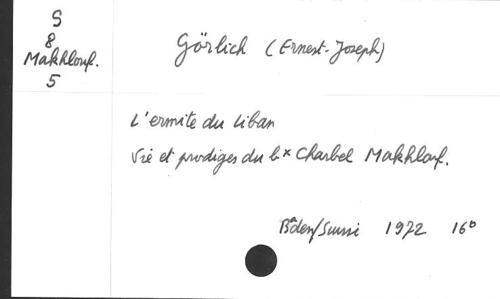 S
8
Makhlouf.
5
Görlich (Ernest-Joseph)
L'ermite du Liban
Vie et prodiges du bx Charbel Makhlouf.
Bâden/Suisse 1972 16°